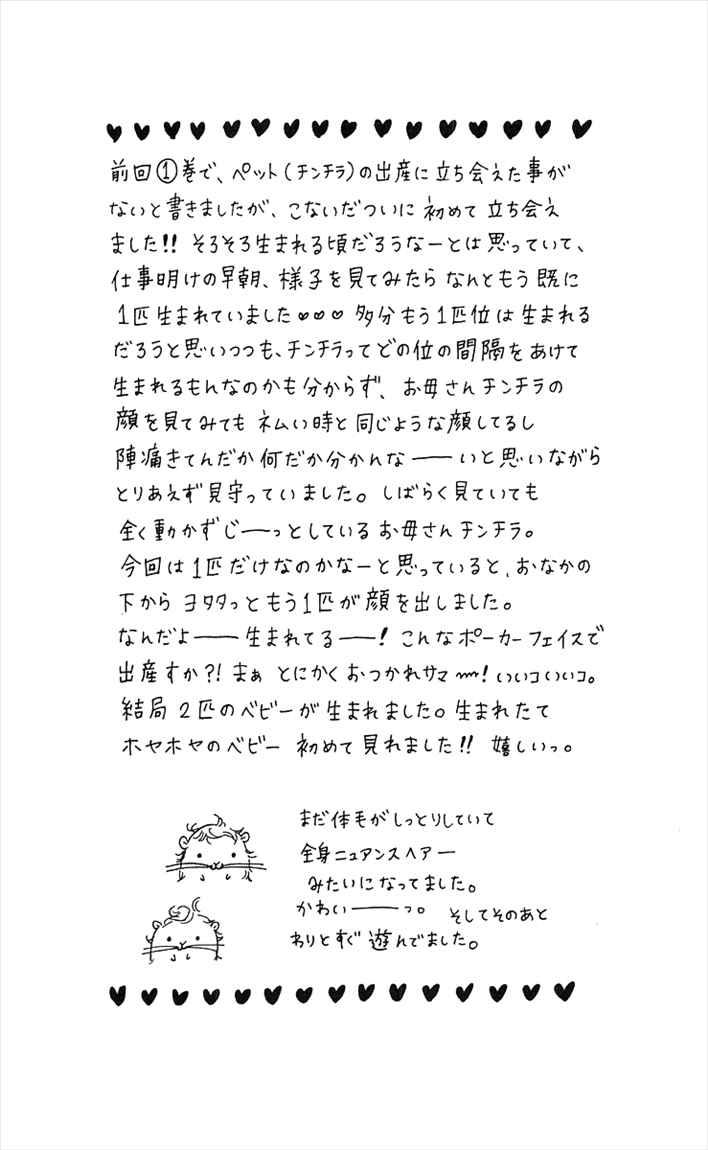 前回①巻で、ペット(チンチラ)の出産に立ち会えた事が
ないと書きましたが、こないだついに 初めて 立ち会え
ました!! そろそろ生まれる頃だろうなーとは思っていて、
仕事明けの早朝、様子を見てみたら なんともう 既に
1匹 生まれていました♡♡♡ 多分もう1匹位は生まれる
だろうと思いつつも、チンチラってどの位の間隔をあけて
生まれるもんなのかも分からず、お母さんチンチラの
顔を見てみても ネムい時と同じような顔してるし
陣痛きてんだか何だか分かんな――いと思いながら
とりあえず見守っていました。しばらく見ていても
全く動かずじ――っとしているお母さんチンチラ。
今回は1匹だけなのかなーと思っていると、おなかの
下から ヨタタっともう1匹が顔を出しました。
なんだよ――生まれてる――! こんなポーカーフェイスで
出産すか?! まぁ とにかくおつかれサマ〰! いいコいいコ。
結局 2匹のベビーが生まれました。生まれたて
ホヤホヤのベビー 初めて見れました!! 嬉しいっ。
まだ体毛がしっとりしていて
全身ニュアンスヘアー
みたいになってました。
かわい――っ。 そしてそのあと
わりとすぐ遊んでました。